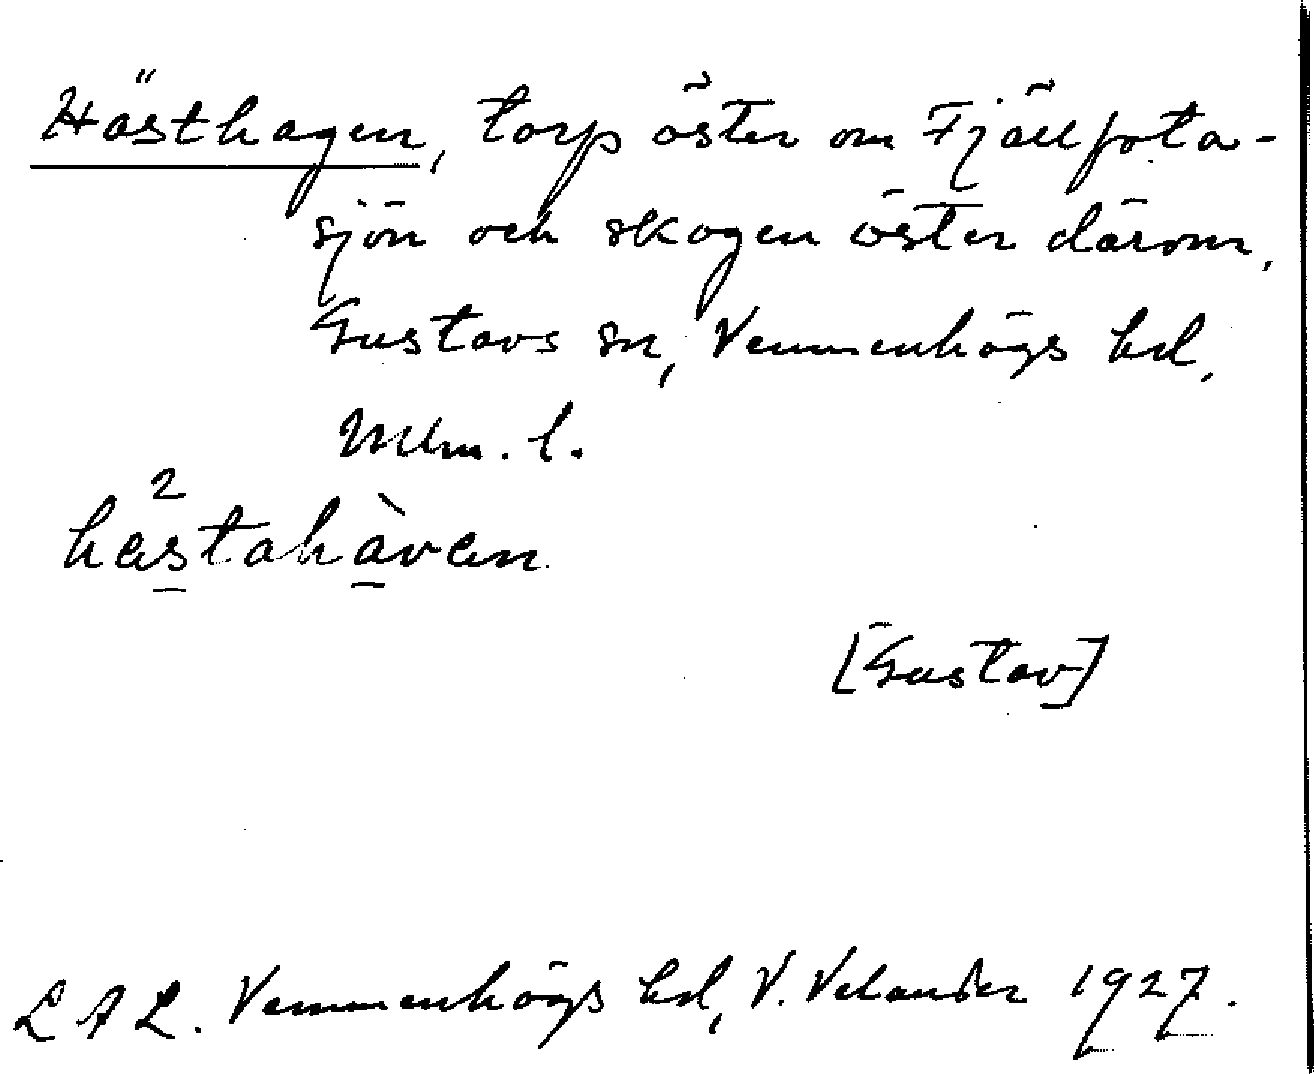 Hästhagen, torp öster om Fjällfota-
sjön och skogen öster därom,
Gustavs sn, Vemmenhögs hd,
Mlm. l.
2
hestahàven
[Gustav]
LAL. Vemmenhögs hd, V. Velander 1927.